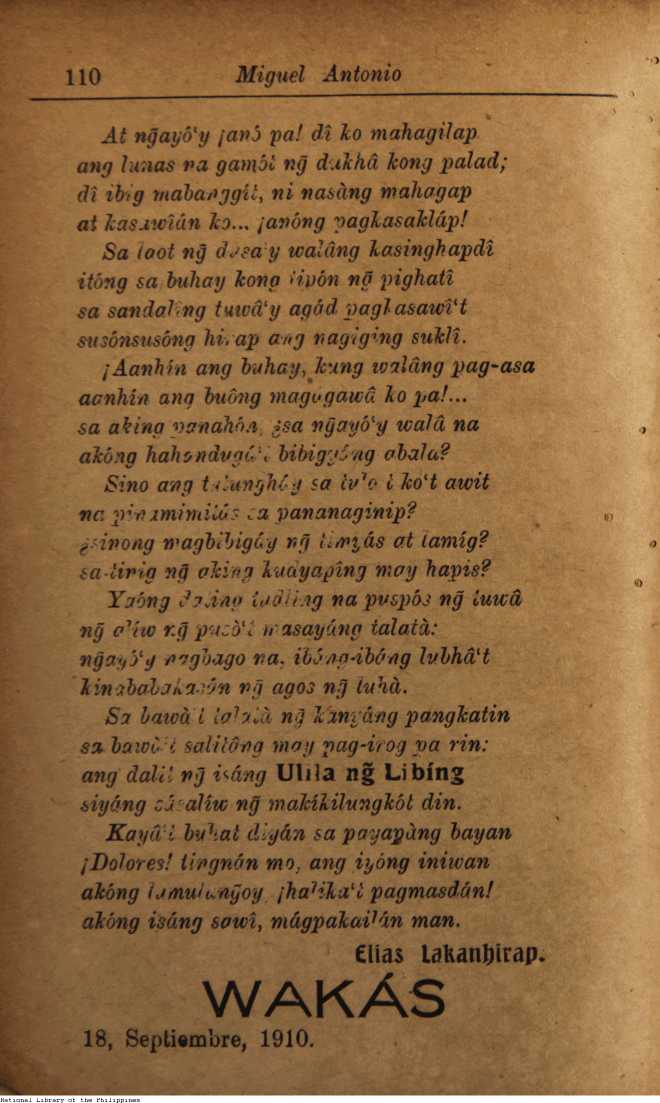 110 Miguel Antonio
At ng̃ayó'y ¡anó pa! dî ko mahagilap
ang lunas na gamót ng̃ dukhâ kong palad;
dî ibig mabanggít, ni nasàng mahagap
at kasawîán ko... ¡anóng pagkasakláp!
Sa loot ng̃ dusa'y walâng kasinghapdî
itóng sa buhay kong tipón ng̃ pighatî
sa sandalîng tuwâ'y agád pagkasawî't
susónsusóng hirap ang nagigíng suklî.
¡Aanhín ang buhay, kung walâng pag-asa
aanhín ang buông magúgawâ ko pa!...
sa aking panahón, ¿sa ng̃ayó'y walâ na
akóng bibigyáng abala?
Sino ang tutungháy sa ko't awit
na sa pananaginip?
¿sinong magbibigáy ng̃ timyás at lamíg?
sa tinig ng̃ aking kudyapîng may hapis?
Yaóng na puspós ng̃ tuwâ
ng̃ aliw ng̃ masayáng talatà:
ng̃ayó'y nagbago na, ibáng-ibáng lubhâ't
kinababakasán ng̃ agos ng̃ luhà.
Sa bawà't talatà ng̃ kanyáng pangkatin
sa bawà't salitâng may pag-irog pa rin:
ang dalít ng̃ isáng Ulila ng̃ Libíng
siyáng ng̃ makíkilungkót din.
Kayâ't buhat diyán sa payapàng bayan
¡Dolores! tingnán mo, ang iyóng iniwan
akóng ¡halika't pagmasdán!
akóng isáng sawî, mágpakailán man.
Elias Lakanhirap.
WAKÁS
18, Septiembre, 1910.
National Library of the Philippines